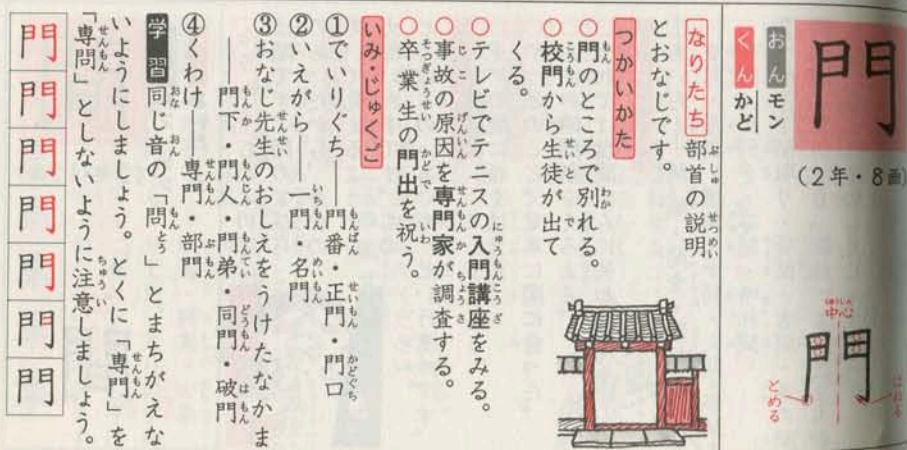 門
(2年・8画)
おん モン
くん かど
中心
門
はねる
とめる
なりたち 部首の説明
とおなじです。
つかいかた
○門のところで別れる。
○校門から生徒が出て
くる。
○テレビでテニスの入門講座をみる。
○事故の原因を専門家が調査する。
○卒業生の門出を祝う。
いみ・じゅくご
①でいりぐち――門番・正門・門口
②いえがら――一門・名門
③おなじ先生のおしえをうけたなかま
――門下・門人・門弟・同門・破門
④くわけ――専門・部門
学習 同じ音の「問」とまちがえな
いようにしましょう。とくに「専門」を
「専問」としないように注意しましょう。
門
門
門
門
門
門
門